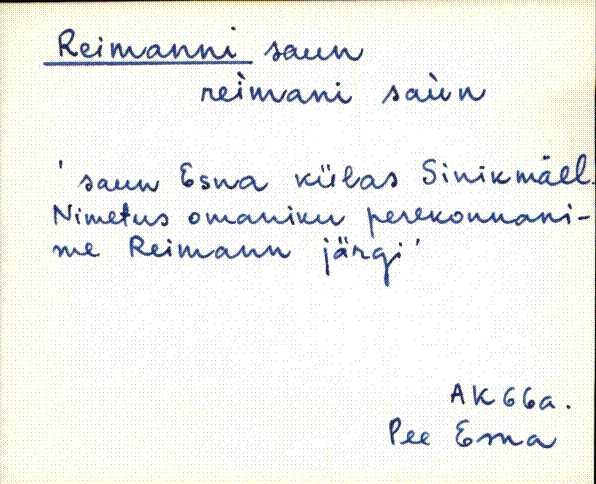 Reimanni saun
reìmani saùn
' saun Esna külas Sinikmäel.
Nimetus omaniku perekonnani-
me Reimann järgi '
AK 66a.
Pee Esna